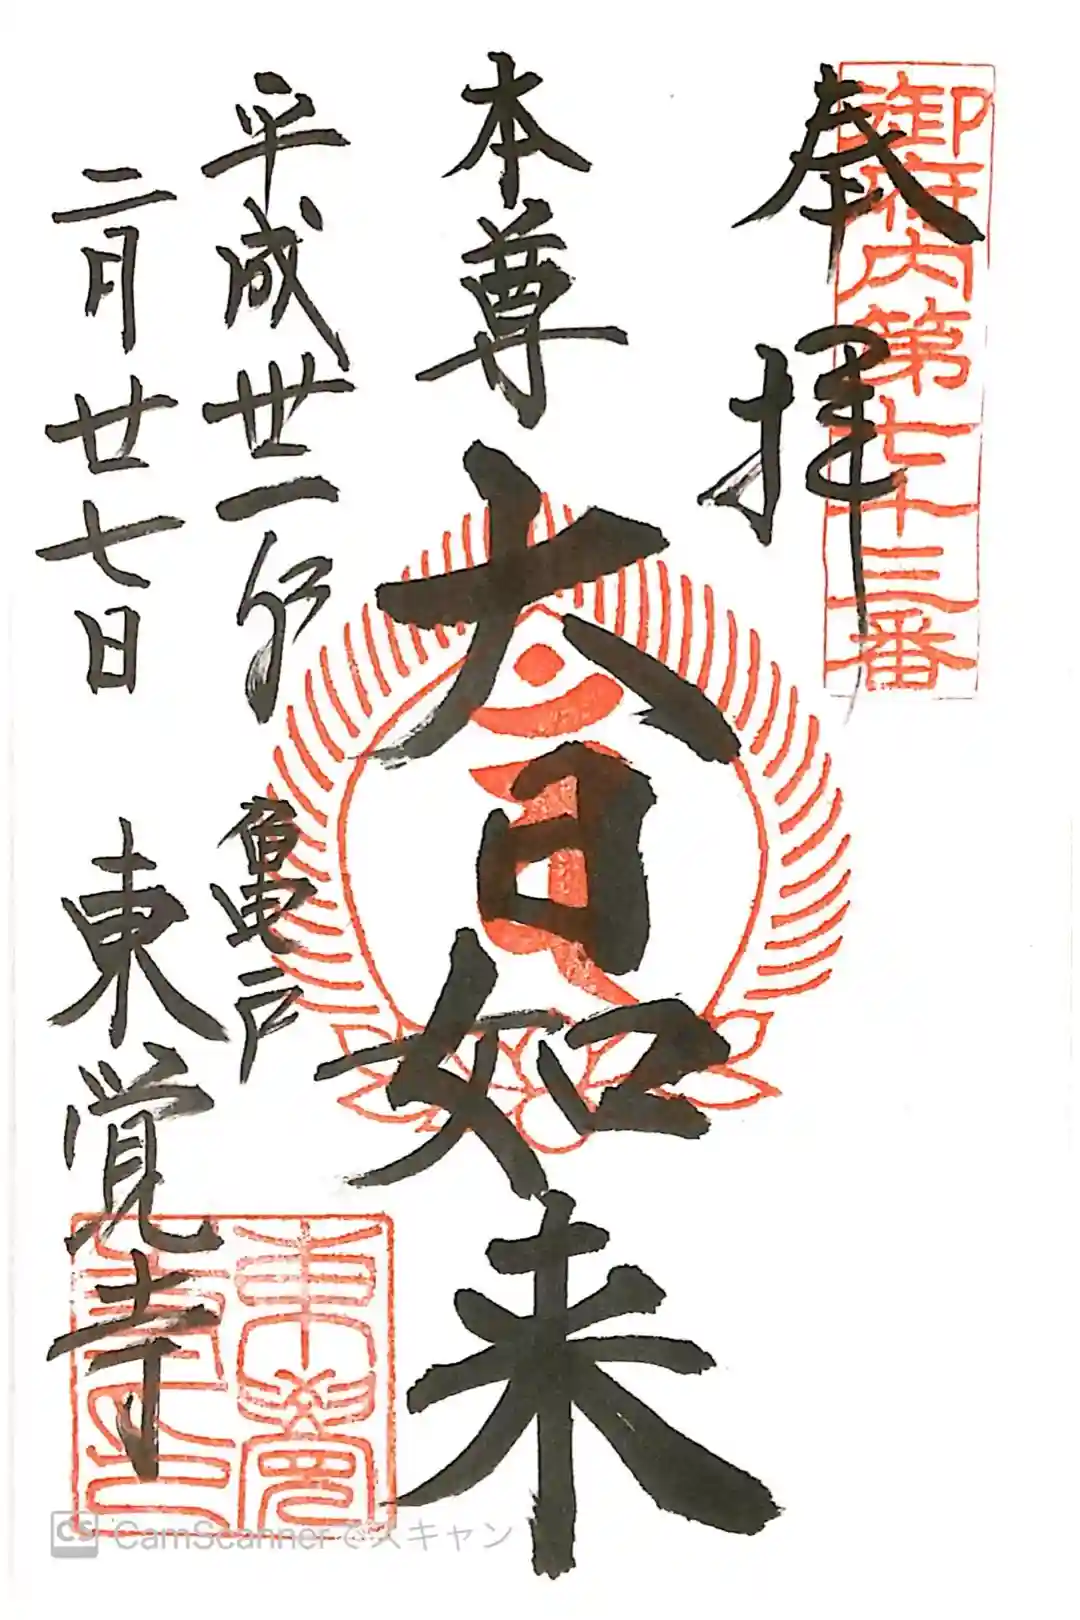 御府内第七十三番
奉拝
本尊 大日如来
平成卅一年
二月廿七日
亀戸
東覚寺
CS CamScannerでスキャン